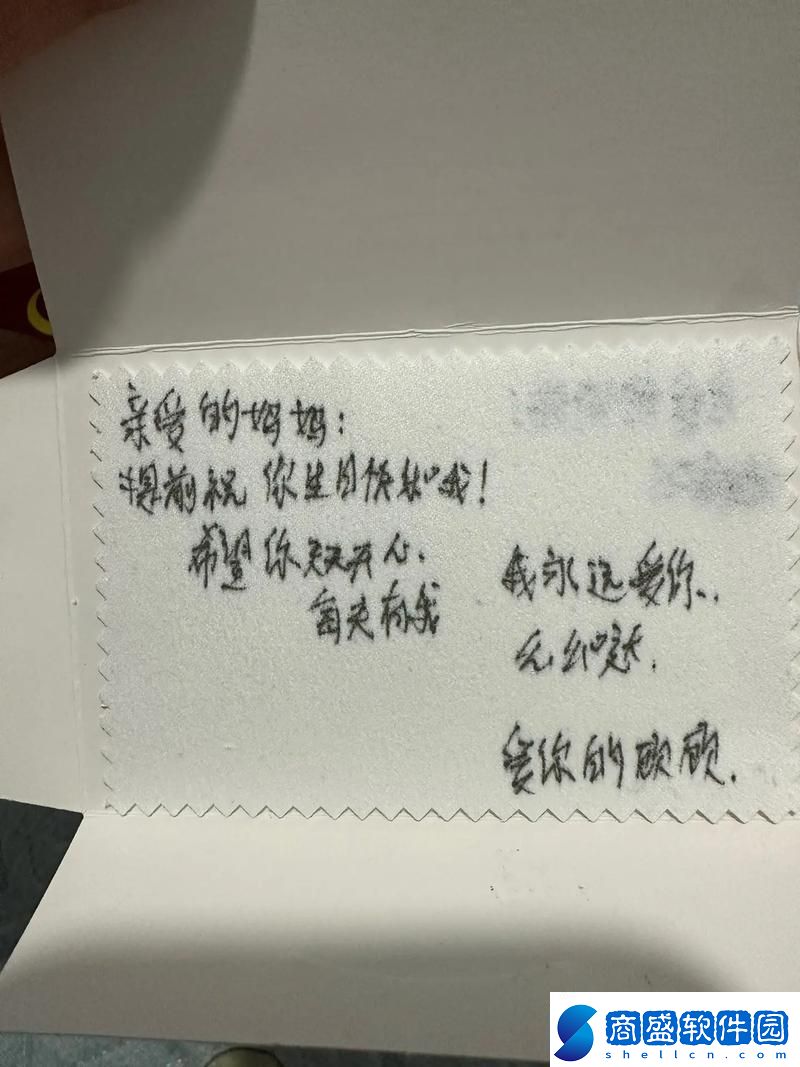 亲爱的妈妈:
提前祝你生日快乐哦!
希望你天天开心.
每天有我
我永远爱你..
无
爱你的顾顾.
商盛软件园
shellcn.com